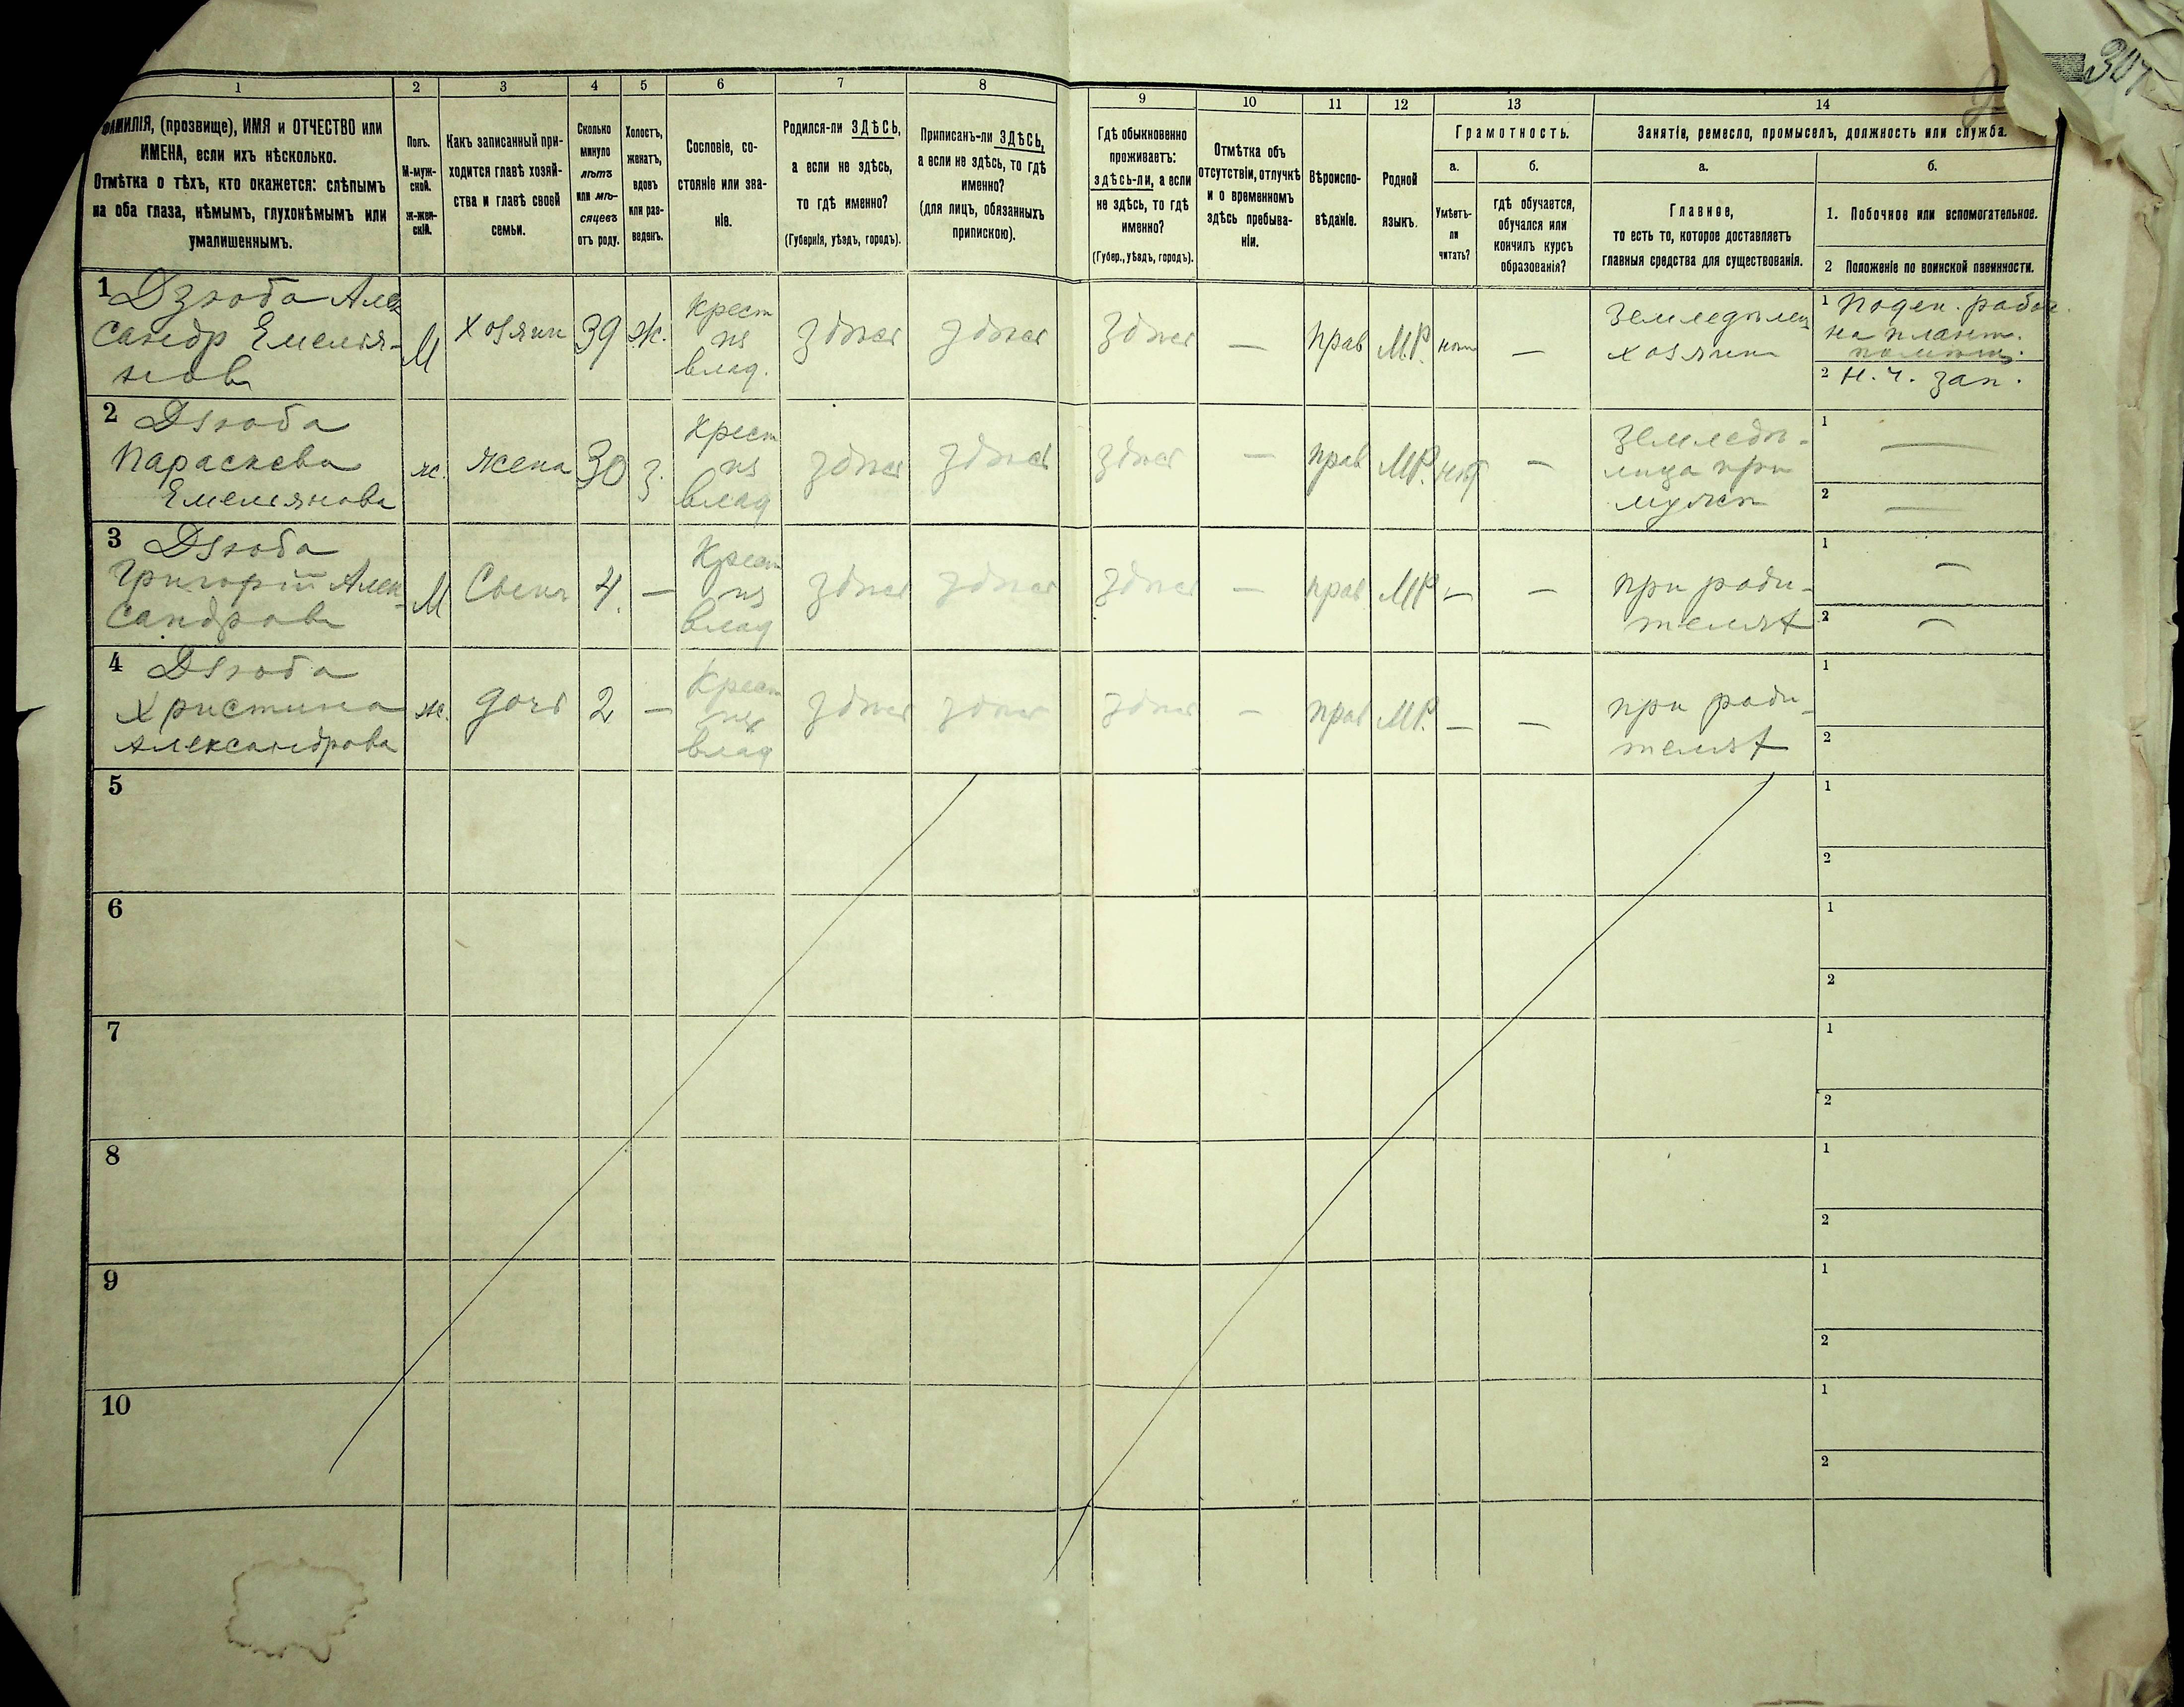 307
1 2 3 4 5 6 7 8 9 10 11 12 13 14
ФАМИЛІЯ, (прозвище), ИМЯ и ОТЧЕСТВО или
ИМЕНА, если ихъ нѣсколько.
Отмѣтка о тѣхъ, кто окажется: слѣпымъ
на оба глаза, нѣмымъ, глухонѣмымъ или
умалишеннымъ.
Полъ.
М-муж-
ской.
ж-жен-
скій.
Какъ записанный при-
ходится главѣ хозяй-
ства и главѣ своей
семьи.
Сколько
минуло
лѣтъ
или мѣ-
сяцевъ
отъ роду.
Холостъ,
женатъ,
вдовъ
или раз-
веденъ.
Сословіе, со-
стояніе или зва-
ніе.
Родился-ли ЗДѢСЬ,
а если не здѣсь,
то гдѣ именно?
(Губернія, уѣздъ, городъ).
Приписанъ-ли ЗДѢСЬ,
а если не здѣсь, то гдѣ
именно?
(для лицъ, обязанныхъ
припискою).
Гдѣ обыкновенно
проживаетъ:
здѣсь-ли, а если
не здѣсь, то гдѣ
именно?
(Губер., уѣздъ, городъ).
Отмѣтка объ
отсутствіи, отлучкѣ
и о временномъ
здѣсь пребыва-
ніи.
Вѣроиспо-
вѣданіе.
Родной
языкъ.
Грамотность.
а.
Умѣетъ-
ли
читать?
б.
гдѣ обучается,
обучался или
кончилъ курсъ
образованія?
Занятіе, ремесло, промыселъ, должность или служба.
а.
Главное,
то есть то, которое доставляетъ
главныя средства для существованія.
б.
1. Побочное или вспомогательное.
2 Положеніе по воинской повинности.
1 Дзюба Алек
сандр Емелья-
нов
М
Хозяин
39
Ж.
Крест
из
влад.
здесь
здесь
здесь
—
прав
М.Р.
нет
—
Земледелец
хозяин
1 Поден. рабоч.
на плант.
2 Н. ч. зап.
2 Дзюба
Параскева
Емельянова
ж.
Жена
30
З.
Крест
из
влад
здесь
здесь
здесь
—
прав
М.Р.
нет
—
Земледе-
лица при
муже
1 —
2 —
3 Дзюба
Григорій Алек-
сандров
М
Сын
4.
—
Крест
из
влад
здесь
здесь
здесь
—
прав
М.Р
—
—
при роди-
телях
1 —
2 —
4 Дзюба
Христина
Александрова
ж.
дочь
2
—
Крест
из
влад
здесь
здесь
здесь
—
прав
М.Р.
—
—
при роди-
телях
1
2
5
1
2
6
1
2
7
1
2
8
1
2
9
1
2
10
1
2